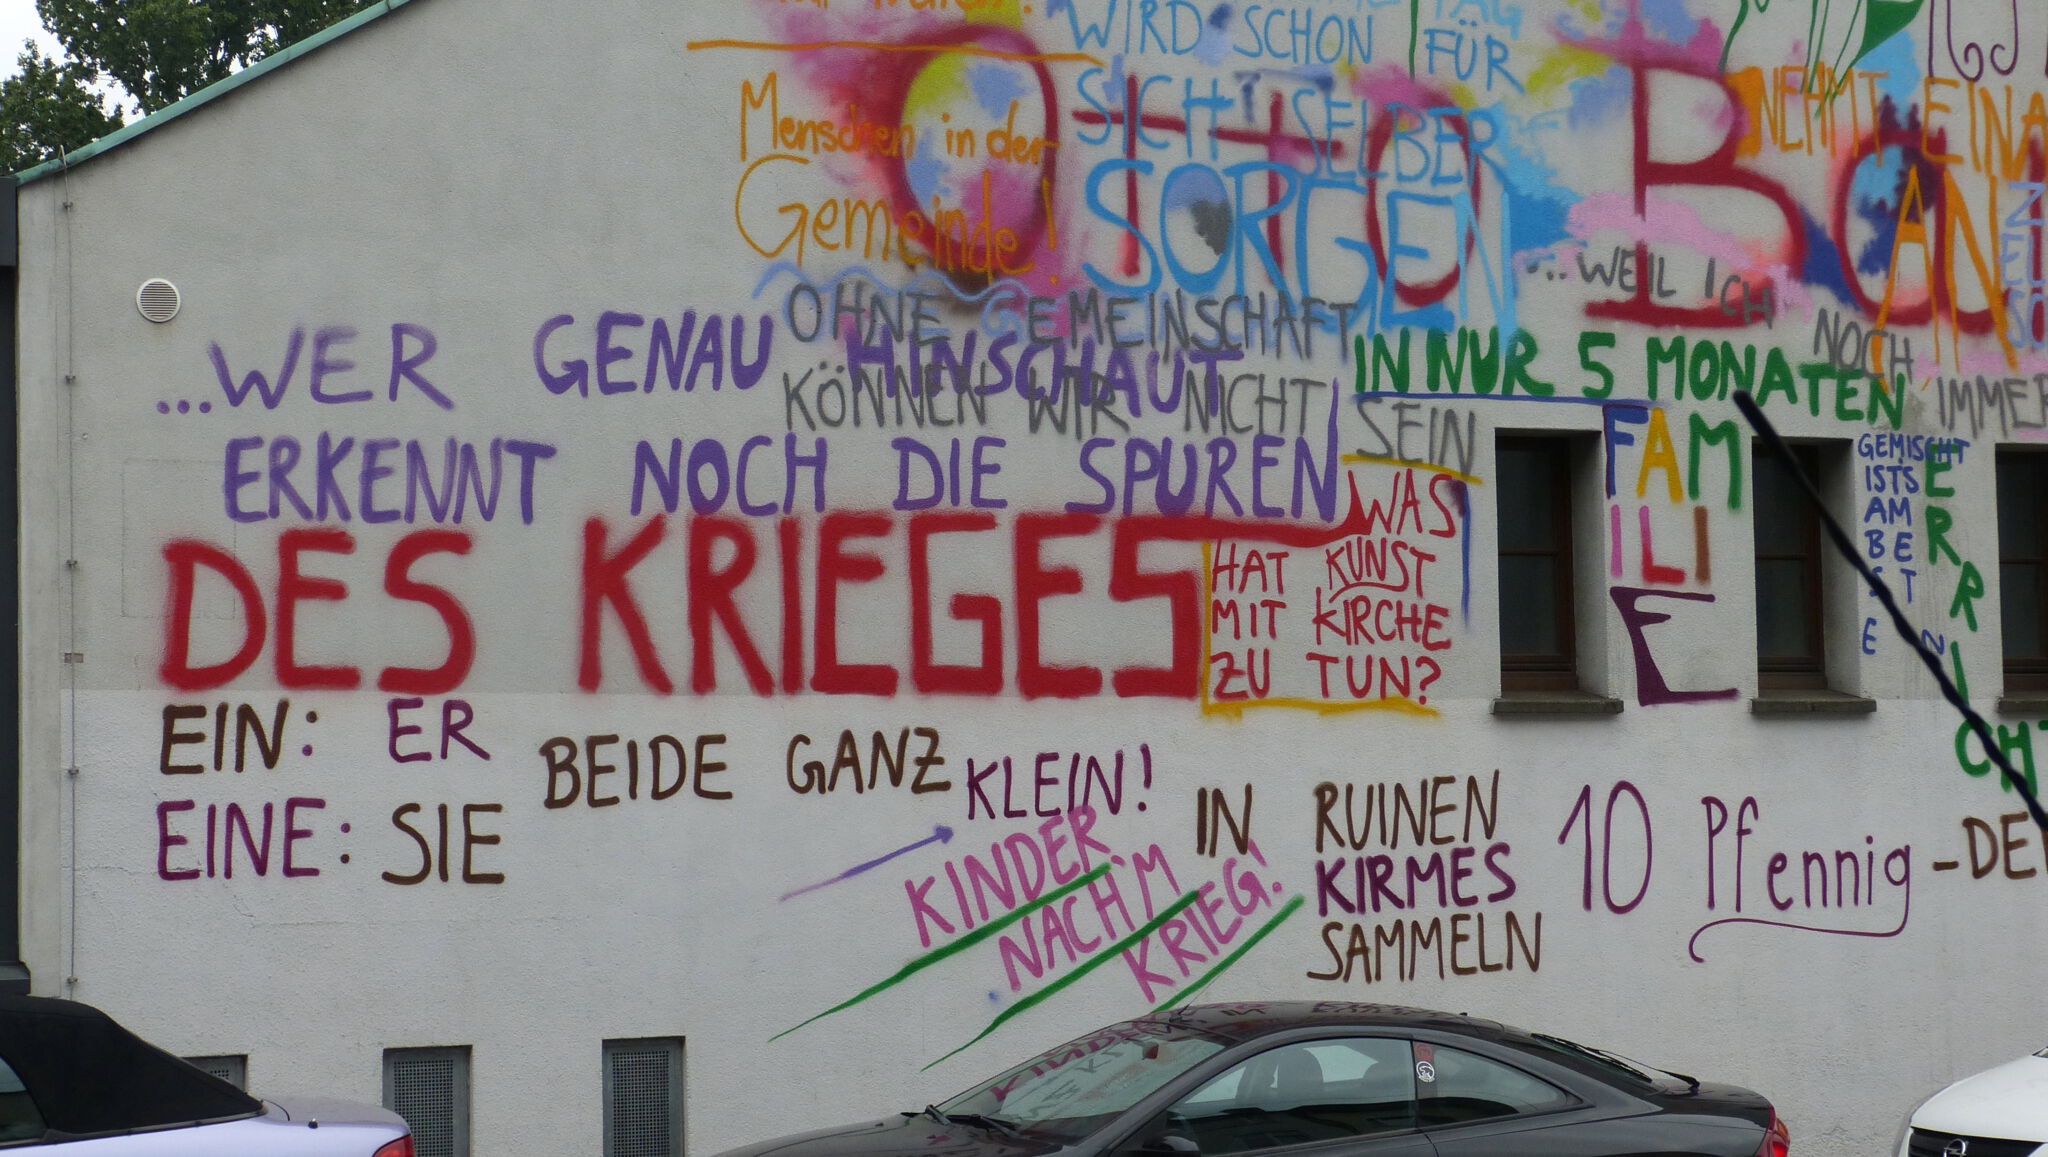 WIRD SCHON
FÜR
SICH SELBER
SORGEN
Menschen in der
Gemeinde!
OTTO
NEHMT
AN
...WEIL ICH
NOCH
IMMER
OHNE GEMEINSCHAFT
KÖNNEN WIR NICHT
SEIN
...WER GENAU HINSCHAUT
ERKENNT NOCH DIE SPUREN
DES KRIEGES
IN NUR 5 MONATEN
ERRICHT
WAS
HAT KUNST
MIT KIRCHE
ZU TUN?
FAM
ILI
E
GEMISCHT
IST'S
AM
BE
ST
E N
EIN: ER
EINE: SIE
BEIDE GANZ
KLEIN!
KINDER
NACH'M
KRIEG!
IN RUINEN
KIRMES
SAMMELN
10 Pfennig